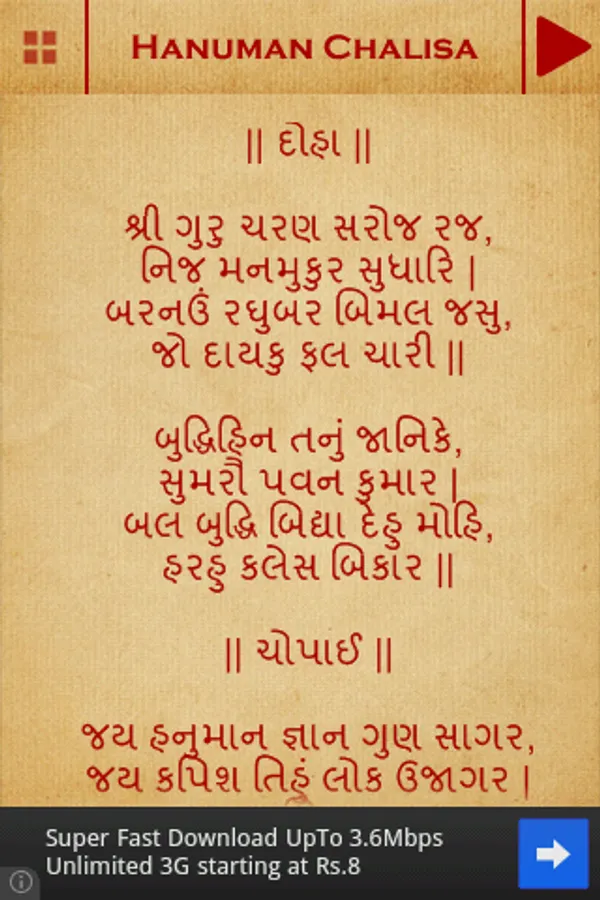 HANUMAN CHALISA
|| દોહા ||
શ્રી ગુરુ ચરણ સરોજ રજ,
નિજ મનમુકુર સુધારિ |
બરનઉં રઘુબર બિમલ જસુ,
જો દાયકુ ફલ ચારી ||
બુદ્ધિહિન તનું જાનિકે,
સુમરૌ પવન કુમાર |
બલ બુદ્ધિ બિદ્યા દેહુ મોહિ,
હરહુ કલેસ બિકાર ||
|| ચોપાઈ ||
જય હનુમાન જ્ઞાન ગુણ સાગર,
જય કપિશ તિહું લોક ઉજાગર |
Super Fast Download UpTo 3.6Mbps
Unlimited 3G starting at Rs.8